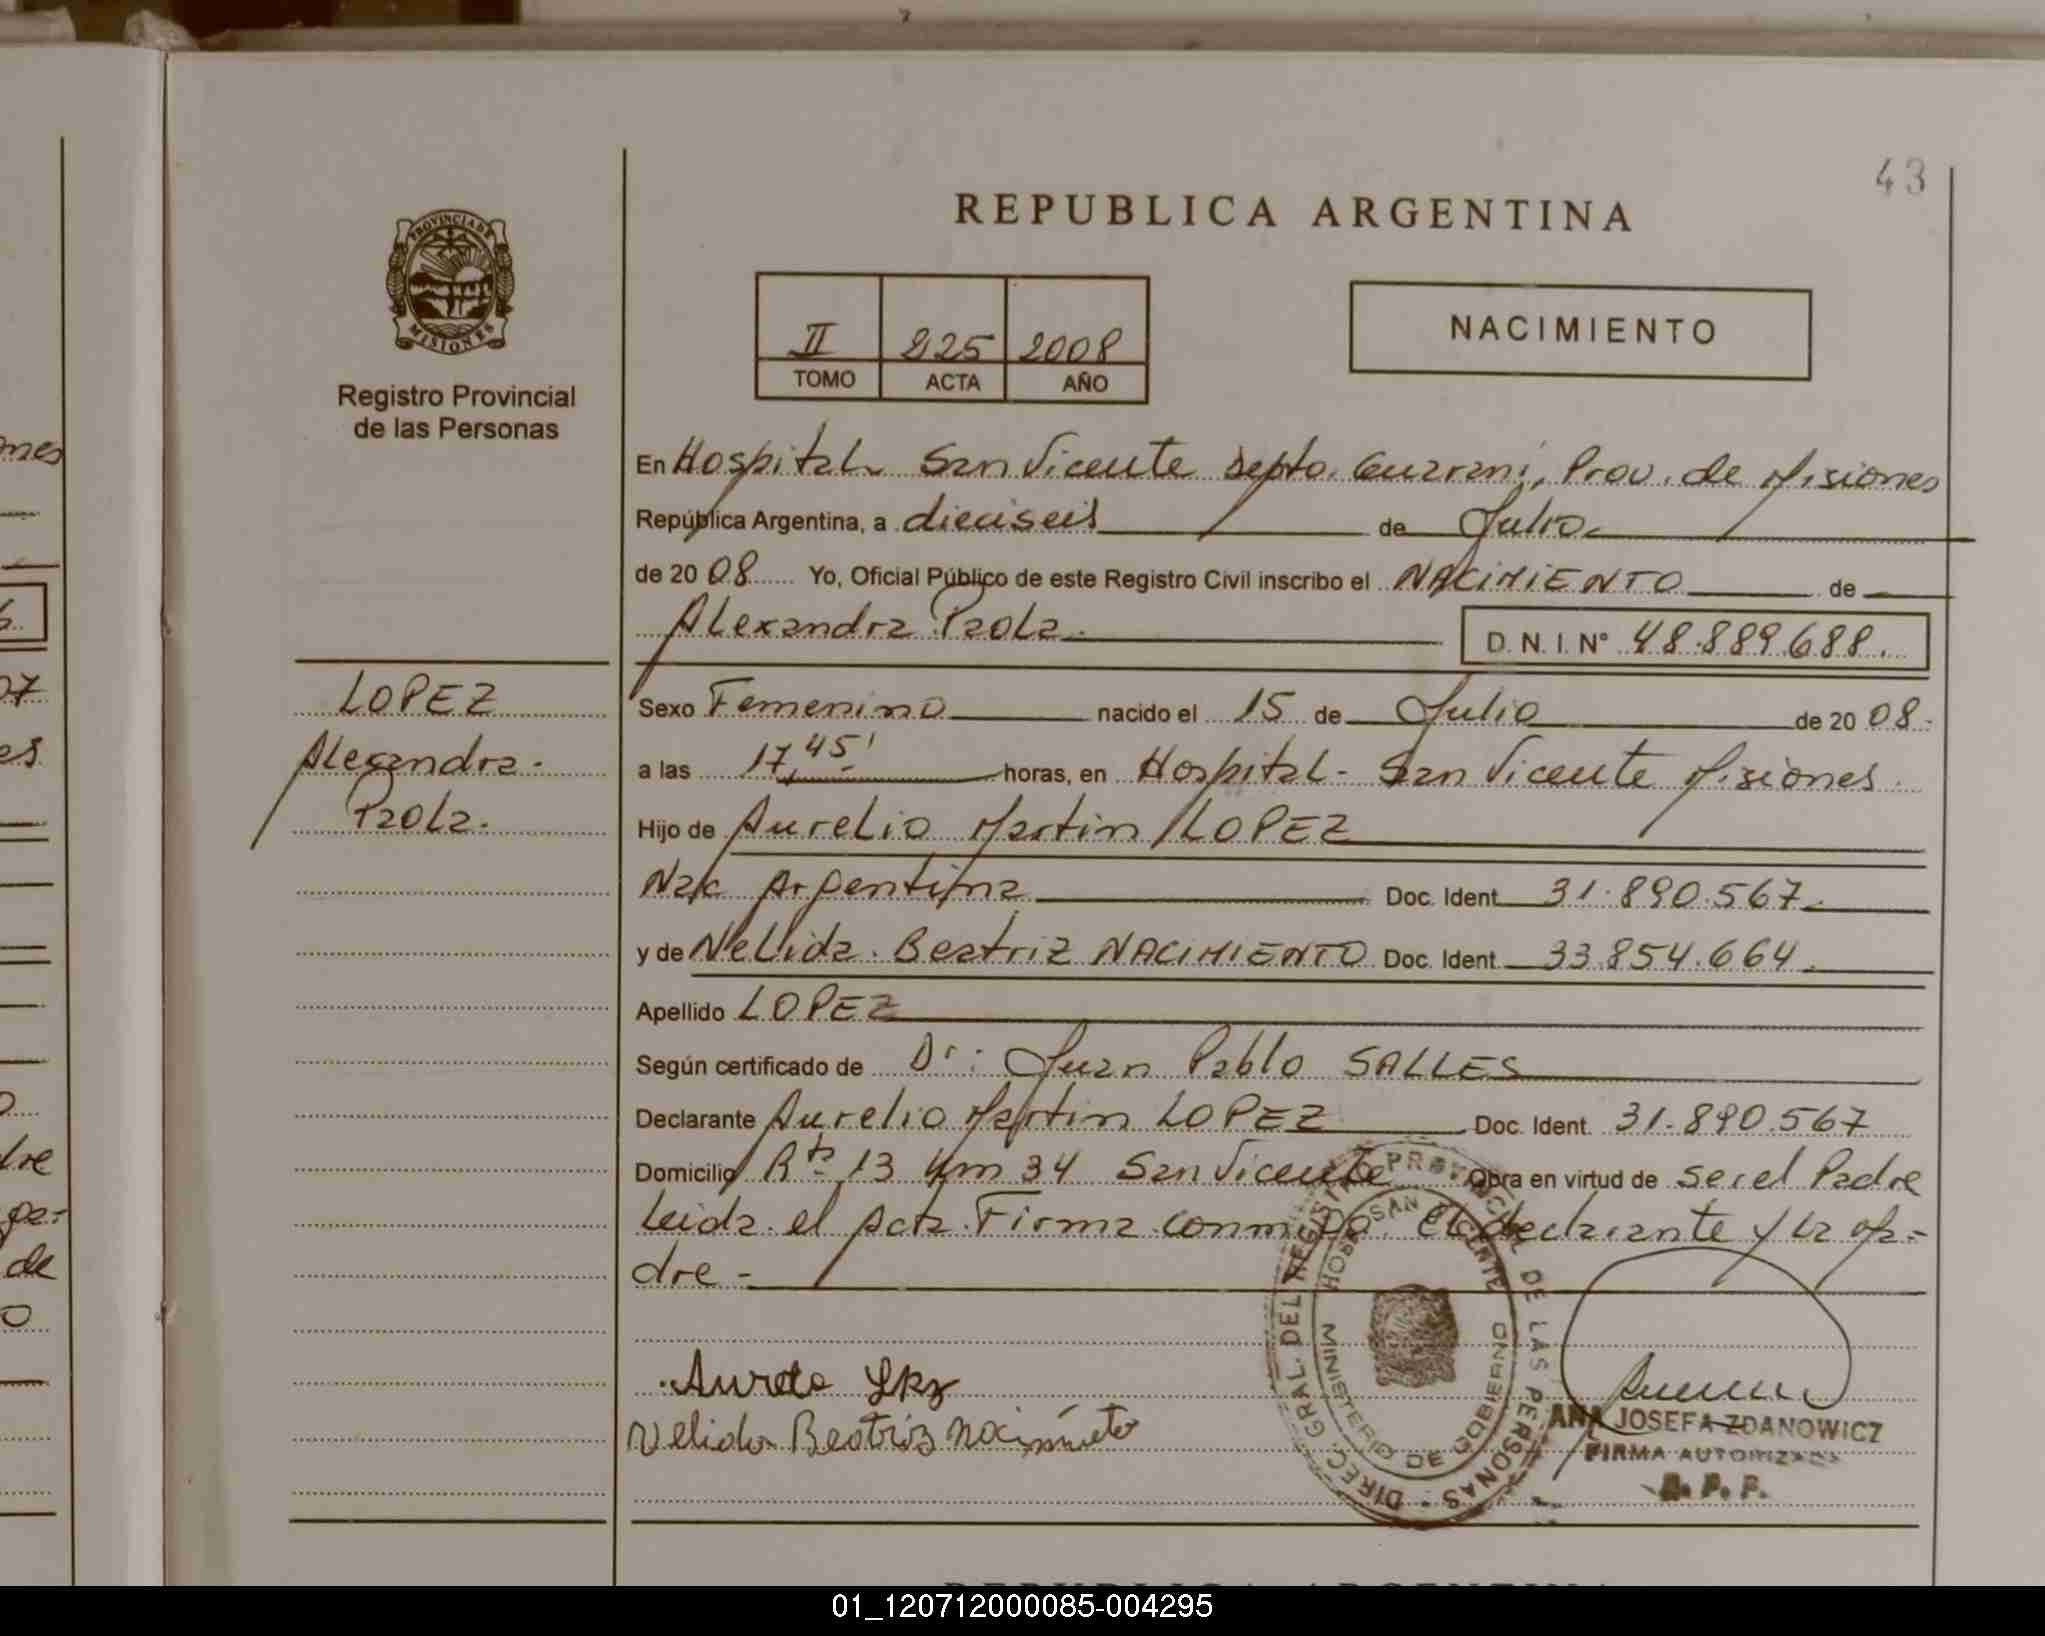 43
REPUBLICA ARGENTINA
PROVINCIA DE
MISIONES
Registro Provincial
de las Personas
II 225 2008
TOMO ACTA AÑO
NACIMIENTO
En Hospital San Vicente Depto. Guarani, Prov. de Misiones
República Argentina, a dieciseis de Julio
de 2008 Yo, Oficial Público de este Registro Civil inscribo el NACIMIENTO de
Alexandra Paola.
D. N. I. N° 48.889.688.
LOPEZ
Alexandra
Paola.
Sexo Femenino nacido el 15 de Julio de 2008.
a las 17,45' horas, en Hospital - San Vicente Misiones
Hijo de Aurelio Martin LOPEZ
Nac Argentina Doc. Ident. 31.890.567.
y de Nelida Beatriz NACIMIENTO Doc. Ident. 33.854.664.
Apellido LOPEZ
Según certificado de Dr: Juan Pablo SALLES
Declarante Aurelio Martin LOPEZ Doc. Ident. 31.890.567
Domicilio Rta 13 Km 34 San Vicente Obra en virtud de ser el Padre
Leida el Acta Firma conmigo El declarante y la Ma-
dre -
Aurelio
Nelida Beatriz Nacimiento
DIREC. GRAL. DEL REGISTRO PROVINCIAL DE LAS PERSONAS
HOSP. SAN VICENTE
MINISTERIO DE GOBIERNO
ANA JOSEFA ZDANOWICZ
FIRMA AUTORIZADA
R. P. P.
01_120712000085-004295